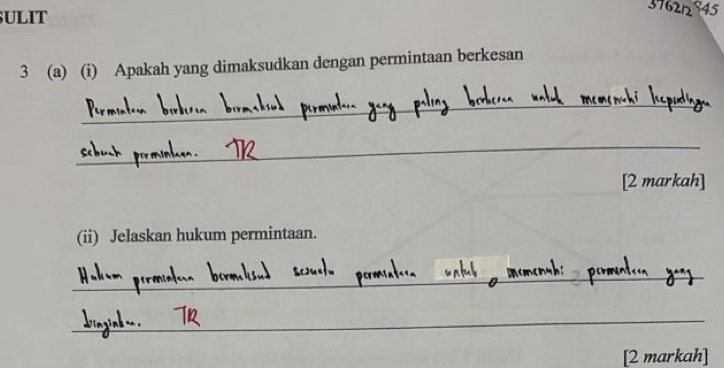 SULIT
3 (a) (i) Apakah yang dimaksudkan dengan permintaan berkesan
Permintaan berkesan bermaksud permintaan yang paling berkesan untuk memenuhi kepentingan
sebuah permintaan. TR
[2 markah]
(ii) Jelaskan hukum permintaan.
Hukum permintaan bermaksud sesuatu permintaan untuk memenuhi permintaan yang
diinginkan. TR
[2 markah]